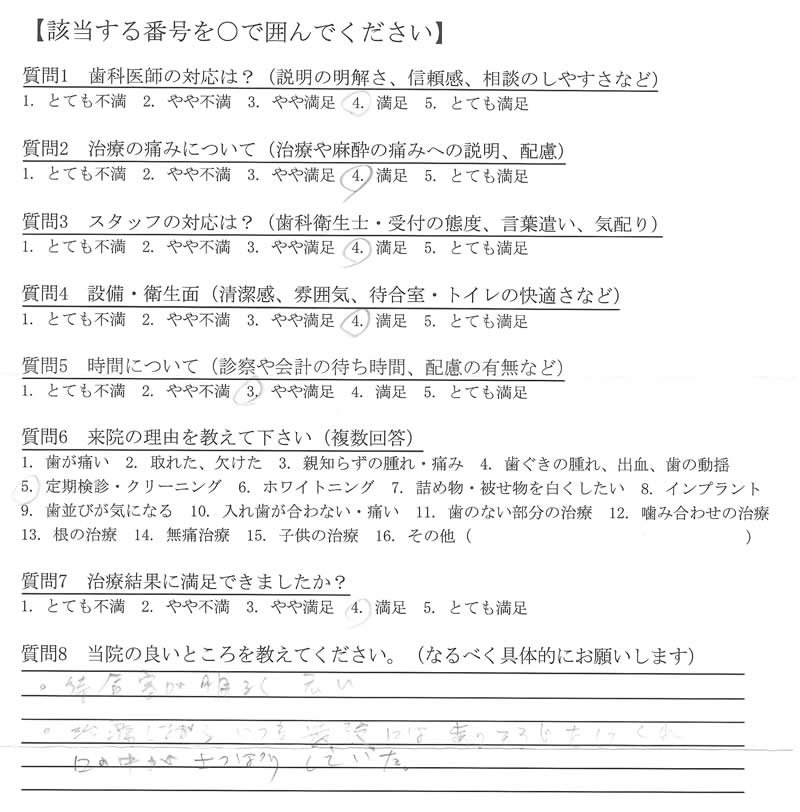 【該当する番号を〇で囲んでください】
質問1 歯科医師の対応は？（説明の明解さ、信頼感、相談のしやすさなど）
1. とても不満 2. やや不満 3. やや満足 4. 満足 5. とても満足
質問2 治療の痛みについて（治療や麻酔の痛みへの説明、配慮）
1. とても不満 2. やや不満 3. やや満足 4. 満足 5. とても満足
質問3 スタッフの対応は？（歯科衛生士・受付の態度、言葉遣い、気配り）
1. とても不満 2. やや不満 3. やや満足 4. 満足 5. とても満足
質問4 設備・衛生面（清潔感、雰囲気、待合室・トイレの快適さなど）
1. とても不満 2. やや不満 3. やや満足 4. 満足 5. とても満足
質問5 時間について（診察や会計の待ち時間、配慮の有無など）
1. とても不満 2. やや不満 3. やや満足 4. 満足 5. とても満足
質問6 来院の理由を教えて下さい（複数回答）
1. 歯が痛い 2. 取れた、欠けた 3. 親知らずの腫れ・痛み 4. 歯ぐきの腫れ、出血、歯の動揺
5. 定期検診・クリーニング 6. ホワイトニング 7. 詰め物・被せ物を白くしたい 8. インプラント
9. 歯並びが気になる 10. 入れ歯が合わない・痛い 11. 歯のない部分の治療 12. 噛み合わせの治療
13. 根の治療 14. 無痛治療 15. 子供の治療 16. その他（ ）
質問7 治療結果に満足できましたか？
1. とても不満 2. やや不満 3. やや満足 4. 満足 5. とても満足
質問8 当院の良いところを教えてください。（なるべく具体的にお願いします）
。待合室が明るく広い
。治療しながら いつも 最後には
口の中が さっぱり していた。